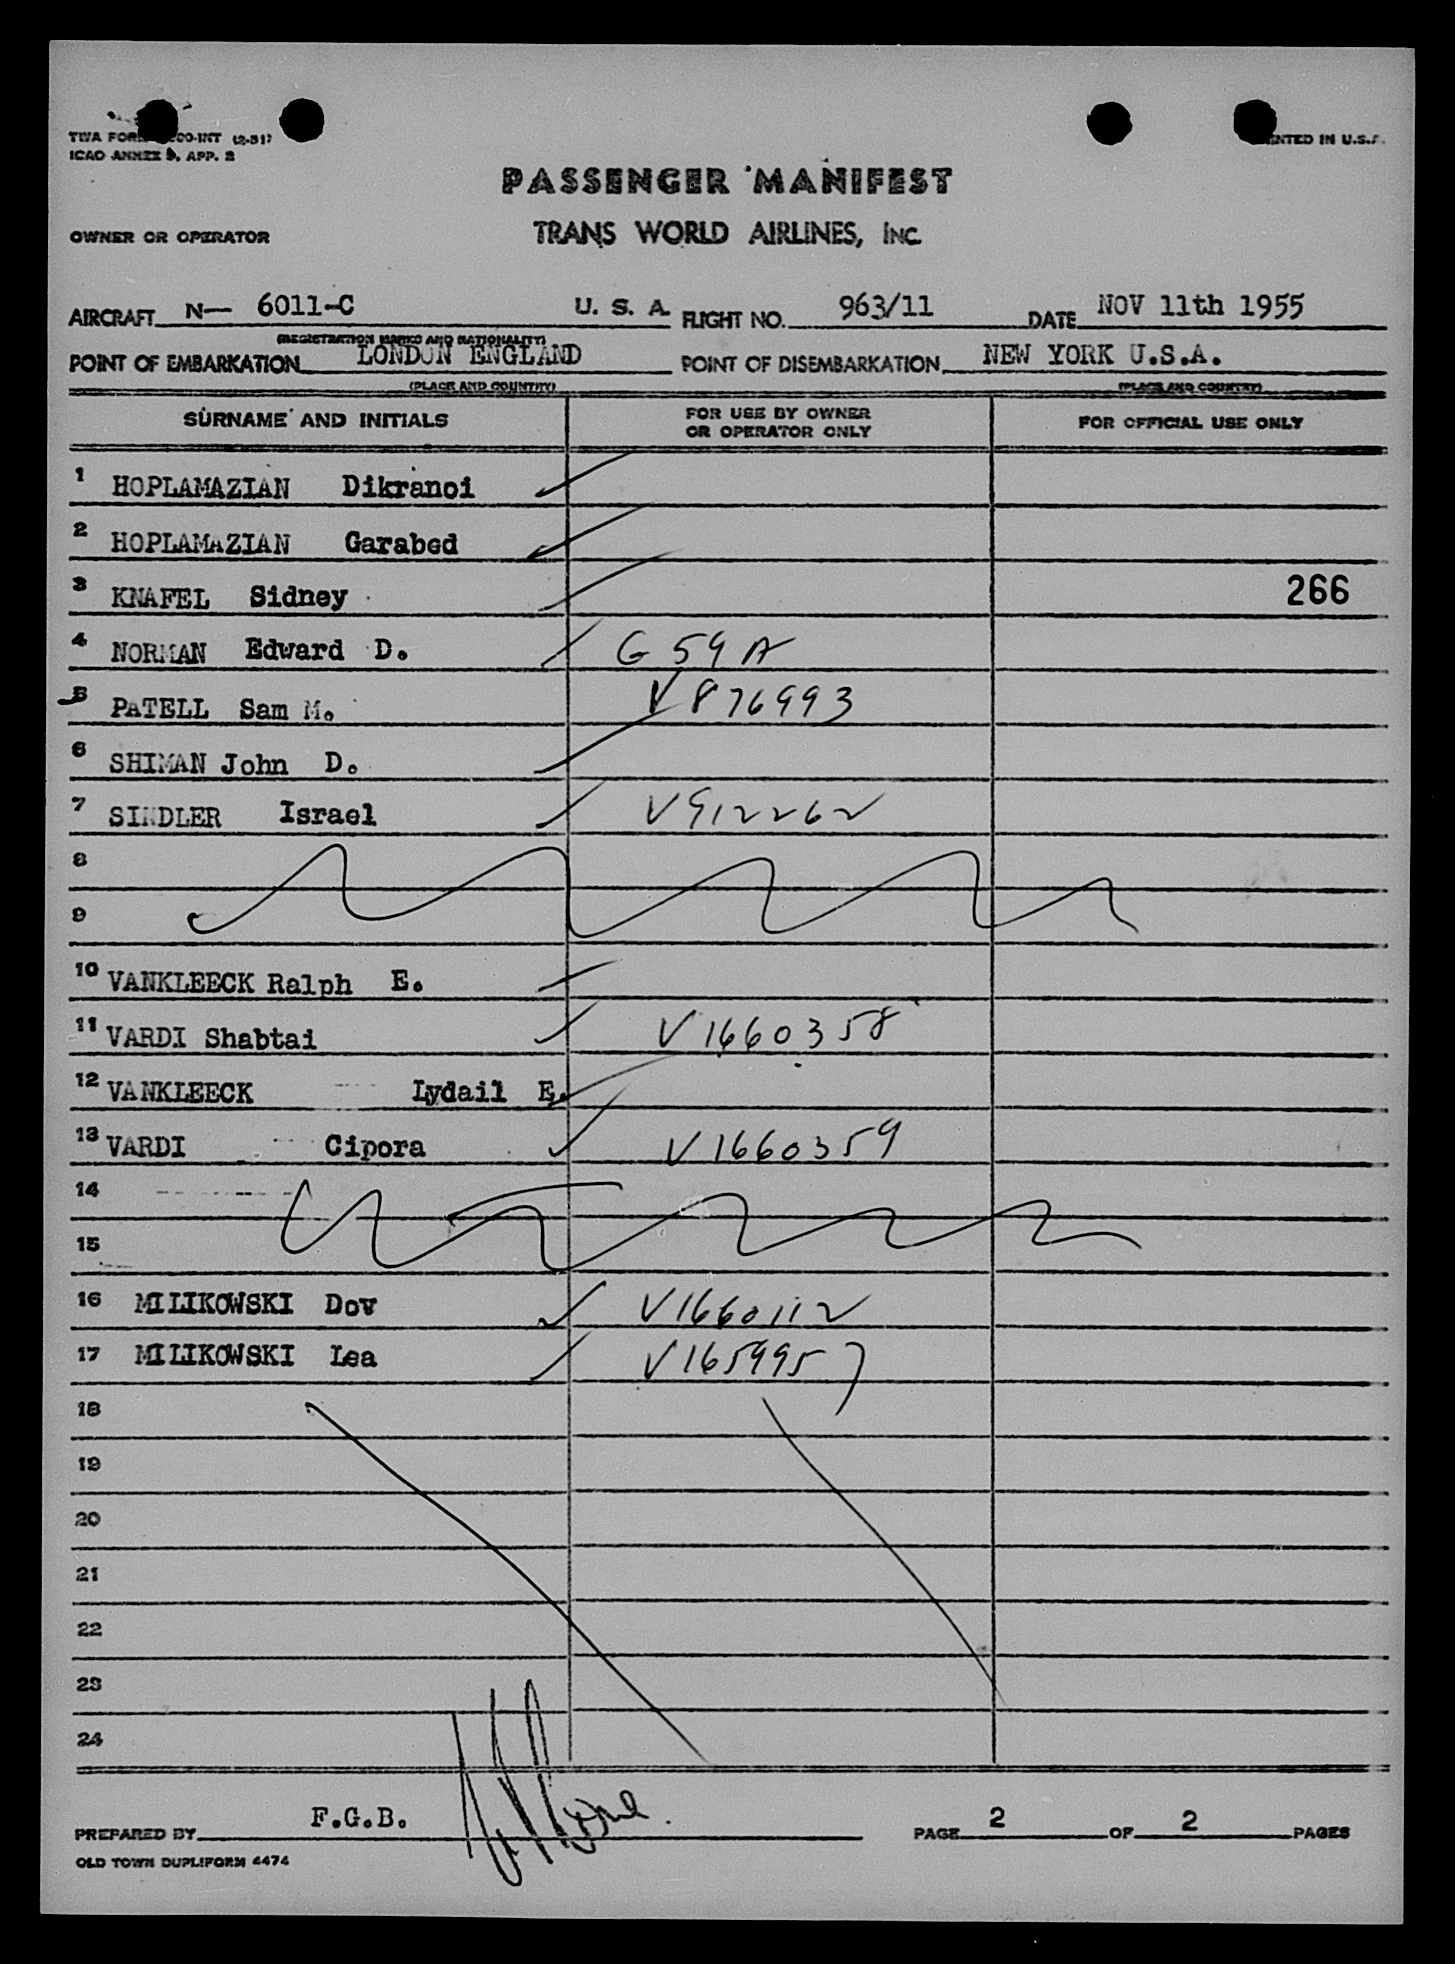 TWA FORM CO-INT (2-51)
ICAO ANNEX 9, APP. 2
PRINTED IN U.S.A.
PASSENGER MANIFEST
OWNER OR OPERATOR TRANS WORLD AIRLINES, INC.
AIRCRAFT N— 6011-C U. S. A. FLIGHT NO. 963/11 DATE NOV 11th 1955
(REGISTRATION MARKS AND NATIONALITY)
POINT OF EMBARKATION LONDON ENGLAND POINT OF DISEMBARKATION NEW YORK U.S.A.
(PLACE AND COUNTRY) (PLACE AND COUNTRY)
SURNAME AND INITIALS FOR USE BY OWNER OR OPERATOR ONLY FOR OFFICIAL USE ONLY
1 HOPLAMAZIAN Dikranoi
2 HOPLAMAZIAN Garabed
3 KNAFEL Sidney 266
4 NORMAN Edward D. G 59 A
5 PATELL Sam M. V 876993
6 SHIMAN John D.
7 SINDLER Israel V912262
8
9
10 VANKLEECK Ralph E.
11 VARDI Shabtai V1660358
12 VANKLEECK Lydail E.
13 VARDI Cipora V1660359
14
15
16 MILIKOWSKI Dov V1660112
17 MILIKOWSKI Lea V1659957
18
19
20
21
22
23
24
PREPARED BY F.G.B. PAGE 2 OF 2 PAGES
OLD TOWN DUPLIFORM 4474